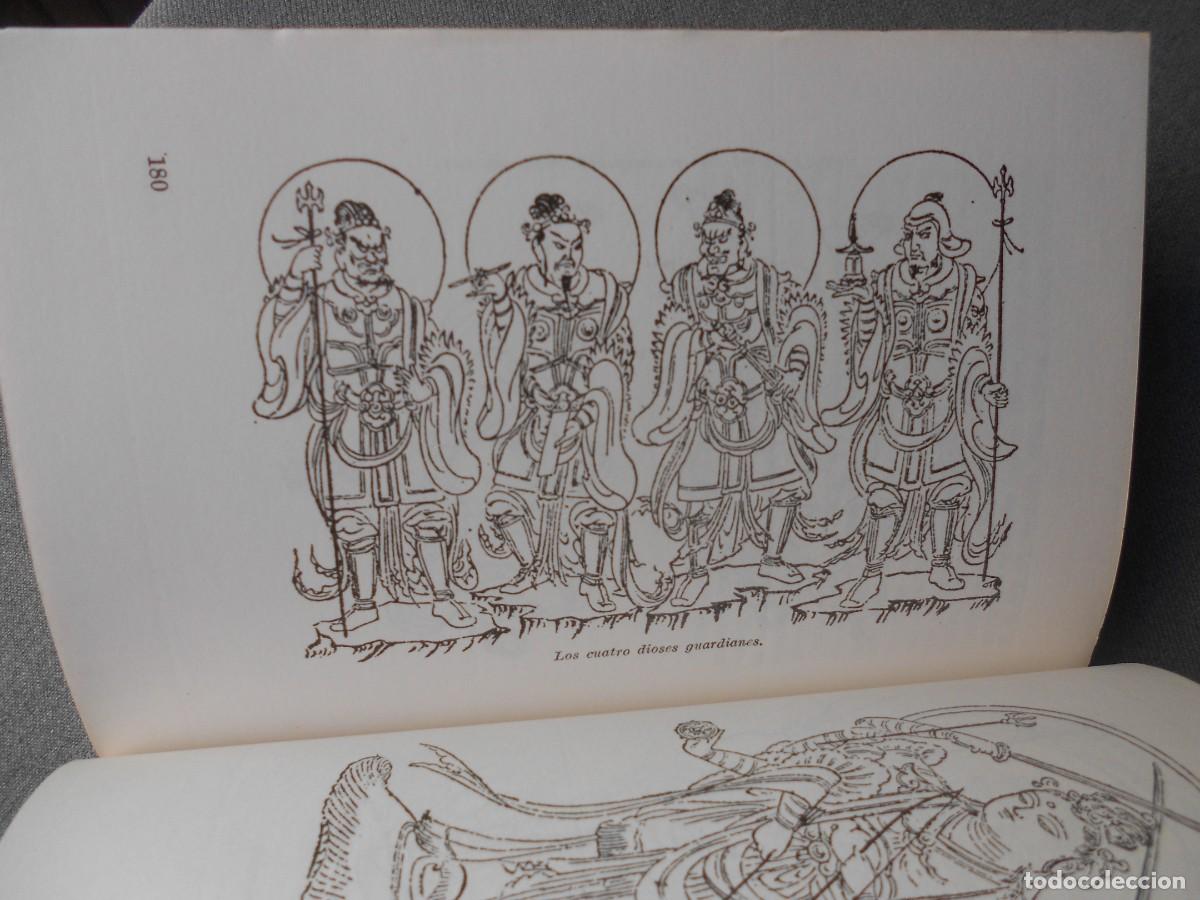 180
Los cuatro dioses guardianes.
todocoleccion